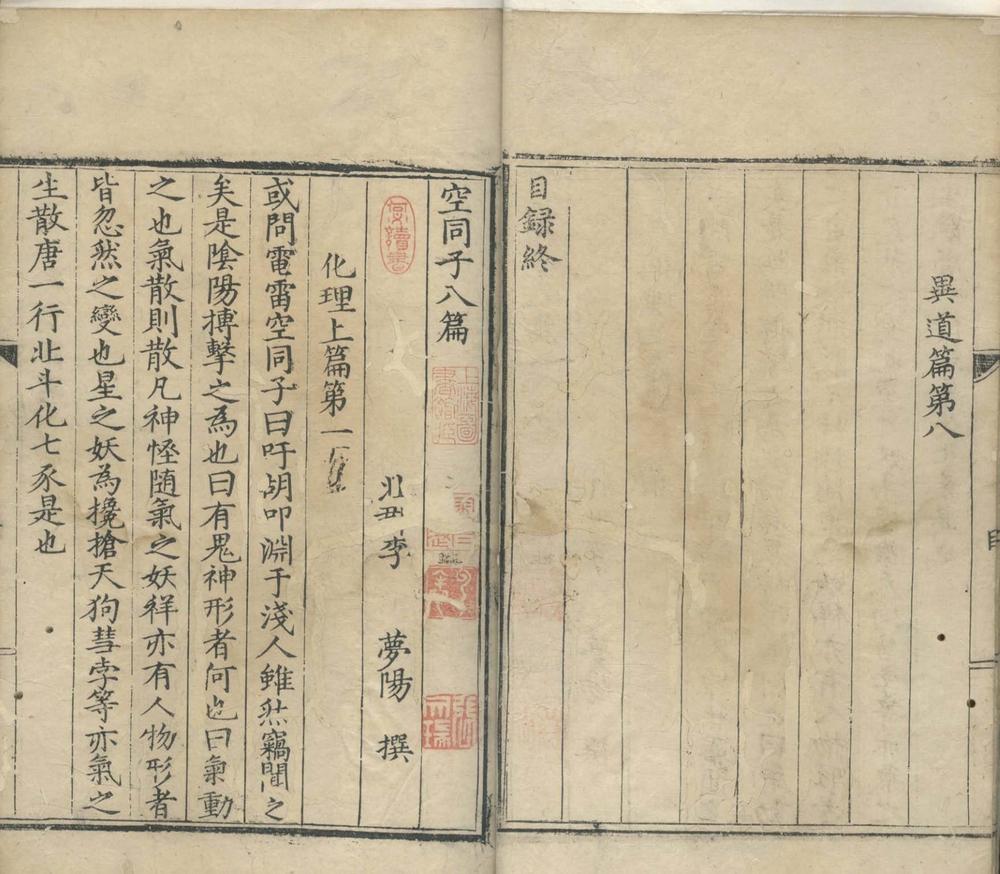 異道篇第八
目録終
空同子八篇
北丑李 夢陽 撰
化理上篇第一
或問電雷空同子曰吁胡叩淵于淺人雖然竊聞之
矣是陰陽搏擊之為也曰有鬼神形者何也曰氣動
之也氣散則散凡神怪随氣之妖祥亦有人物形者
皆忽然之變也星之妖為攙搶天狗彗孛等亦氣之
生散唐一行北斗化七豕是也